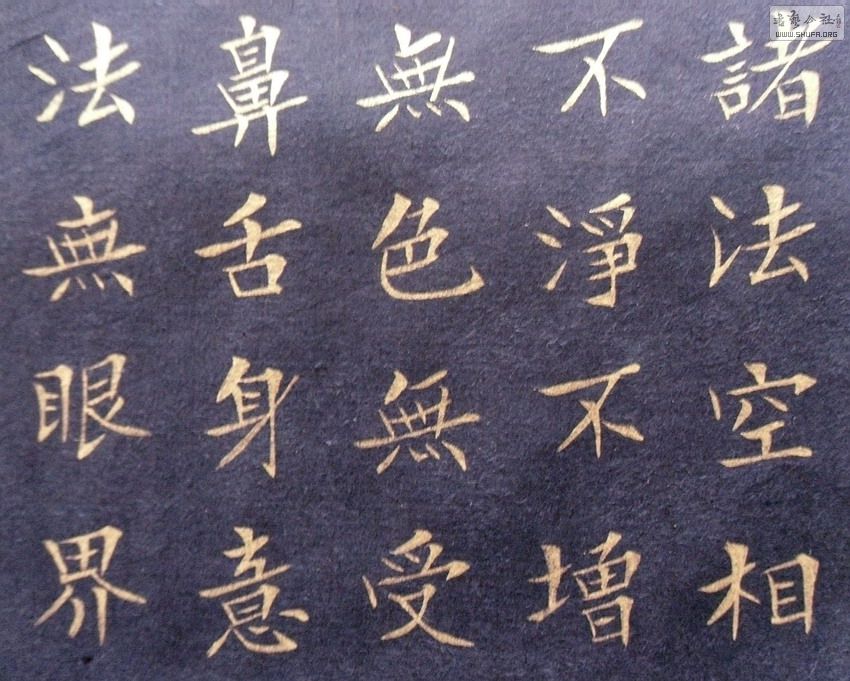 諸法空相
不淨不增
無色無受
鼻舌身意
法無眼界
WWW.SHUFA.ORG